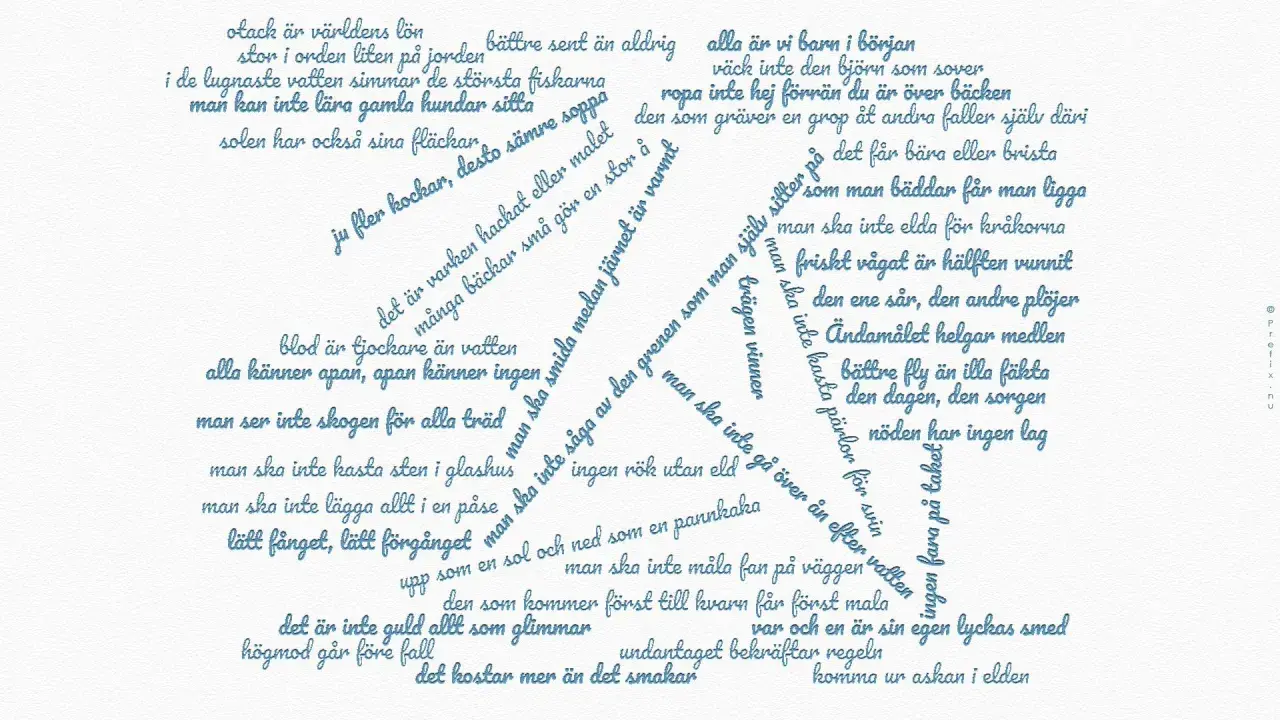 otack är världens lön
stor i orden liten på jorden
bättre sent än aldrig
alla är vi barn i början
i de lugnaste vatten simmar de största fiskarna
väck inte den björn som sover
man kan inte lära gamla hundar sitta
ropa inte hej förrän du är över bäcken
den som gräver en grop åt andra faller själv däri
solen har också sina fläckar
ju fler kockar, desto sämre soppa
det är varken hackat eller malet
många bäckar små gör en stor å
man ska smida medan järnet är varmt
man ska inte såga av den grenen som man själv sitter på
det får bära eller brista
som man bäddar får man ligga
man ska inte elda för kråkorna
friskt vågat är hälften vunnit
man ska inte kasta pärlor för svin
trägen vinner
den ene sår, den andre plöjer
Ändamålet helgar medlen
blod är tjockare än vatten
alla känner apan, apan känner ingen
bättre fly än illa fäkta
den dagen, den sorgen
man ser inte skogen för alla träd
man ska inte gå över ån efter vatten
nöden har ingen lag
ingen fara på taket
man ska inte kasta sten i glashus
ingen rök utan eld
man ska inte lägga allt i en påse
lätt fånget, lätt förgånget
upp som en sol och ned som en pannkaka
man ska inte måla fan på väggen
den som kommer först till kvarn får först mala
det är inte guld allt som glimmar
var och en är sin egen lyckas smed
högmod går före fall
undantaget bekräftar regeln
det kostar mer än det smakar
komma ur askan i elden
© Prefix.nu